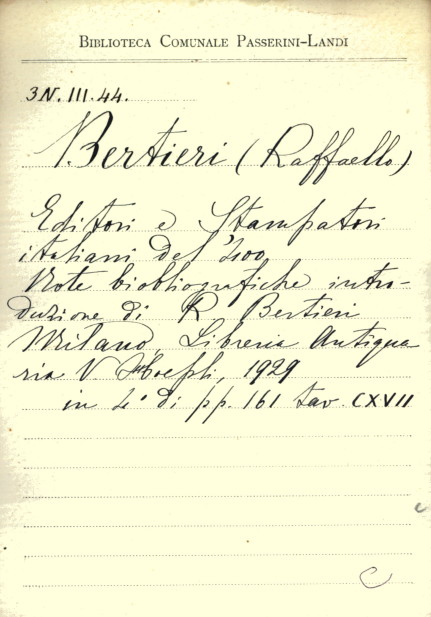 BIBLIOTECA COMUNALE PASSERINI-LANDI
3N. III. 44.
Bertieri (Raffaello)
Editori e Stampatori
italiani del '400
Note biobliografiche intro-
duzione di R Bertieri
Milano, Libreria Antiqua-
ria V Hoepli, 1929
in 4° di pp. 161 tav. CXVII